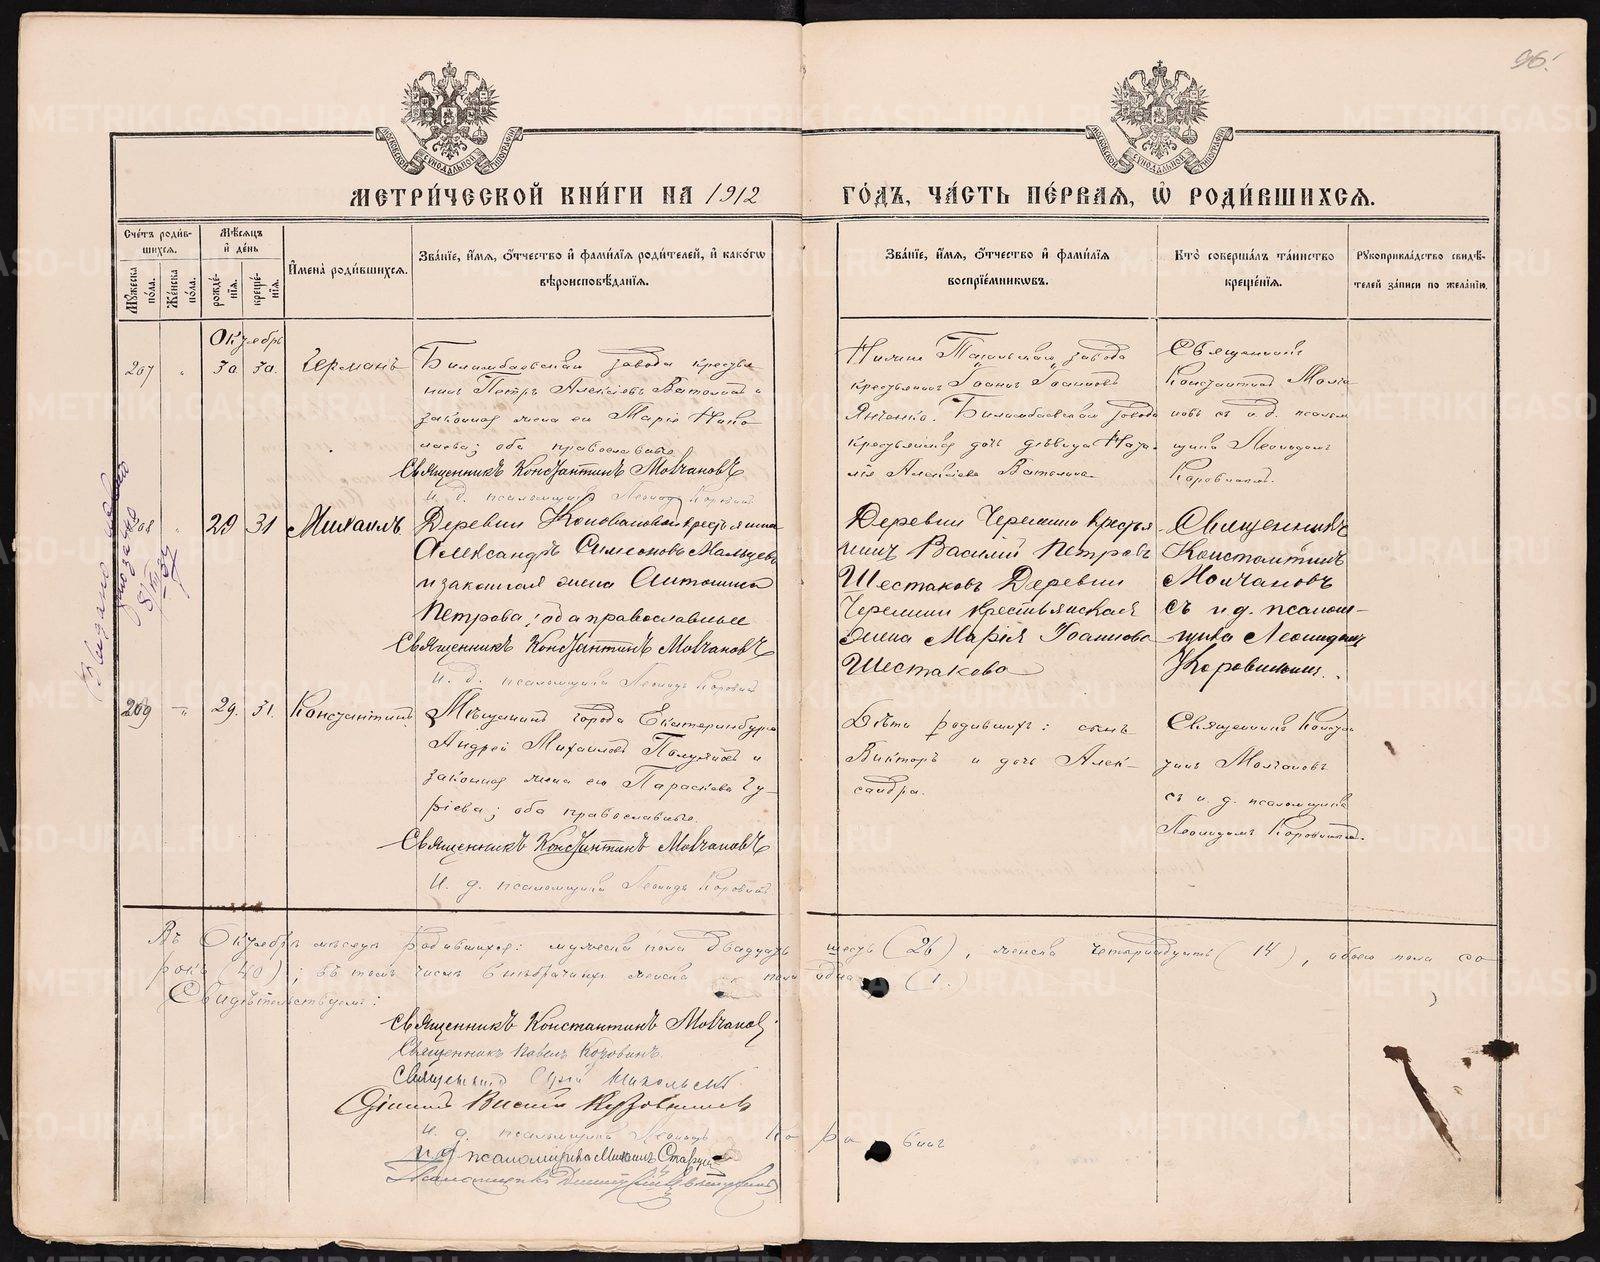 96.
МОСКОВСКОЙ СѴНОДАЛЬНОЙ ТИПОГРАФІИ
МОСКОВСКОЙ СѴНОДАЛЬНОЙ ТИПОГРАФІИ
МЕТРИ́ЧЕСКОЙ КНИ́ГИ НА 1912
ГО́ДЪ, ЧА́СТЬ ПЕ́РВАЯ, Ѽ РОДИ́ВШИХСЯ.
Сче́тъ роди́в-
шихся.
Мѣ́сяцъ
и҆ де́нь
Му́жеска по́ла.
Же́нска по́ла.
рожде́нїя.
креще́нїя.
И҆мена̀ роди́вшихся.
Зва́нїе, и҆́мя, ѻ҆́тчество и҆ фамі́лїя роди́телей, и҆ како́гѡ
вѣроисповѣ́данїя.
Зва́нїе, и҆́мя, ѻ҆́тчество и҆ фамі́лїя
воспрїе́мникѡвъ.
Кто̀ соверша́лъ та́инство
креще́нїя.
Рꙋкоприкла́дство свидѣ́-
телей за́писи по жела́нїю.
Октябрь
207 " 30 30. Германъ
Билимбаевскаго завода крестья-
нинъ Петръ Алексѣевъ Ватолинъ и
законная жена его Марія Нико-
лаева; оба православные.
Священникъ Константинъ Молчановъ
И. д. псаломщика Леонидъ Коровинъ
Нижне Тагильскаго завода
крестьянинъ Іоаннъ Іоанновъ
Янченко. Билимбаевскаго завода
крестьянская дочь дѣвица Ната-
лія Алексѣева Ватолина.
Священникъ
Константинъ Молча-
новъ съ и. д. псалом-
щика Леонидомъ
Коровинымъ.
208 " 29 31 Михаилъ
Деревни Коноваловой крестьянинъ
Александръ Симеоновъ Мальцевъ
и законная жена Антонина
Петрова; оба православные
Священникъ Константинъ Молчановъ
И. д. псаломщика Леонидъ Коровинъ
Деревни Черемши крестья-
нинъ Василій Петровъ
Шестаковъ Деревни
Черемши крестьянская
жена Марія Іоаннова
Шестакова
Священникъ
Константинъ
Молчановъ
съ и. д. псалом-
щика Леонидомъ
Коровинымъ.
209 " 29. 31. Константинъ
Мѣщанинъ города Екатеринбурга
Андрей Михайловъ Полуяновъ и
законная жена его Параскева Гу-
ріева; оба православные.
Священникъ Константинъ Молчановъ
И. д. псаломщика Леонидъ Коровинъ
Дѣти родившихъ: сынъ
Викторъ и дочь Алек-
сандра.
Священникъ Констан-
тинъ Молчановъ
съ и. д. псаломщика
Леонидомъ Коровинымъ.
Въ Октябрѣ мѣсяцѣ родившихся: мужеска пола двадцать шесть (26), женска четырнадцать (14), обоего пола со-
рокъ (40); въ томъ числѣ внѣбрачныхъ женска пола одна (1.)
Свидѣтельствуемъ:
Священникъ Константинъ Молчановъ
Священникъ Павелъ Коровинъ.
Священникъ Никольскій
Діаконъ
И. д. псаломщика Леонидъ Коровинъ
И д псаломщика Михаилъ
Псаломщикъ Димитрій